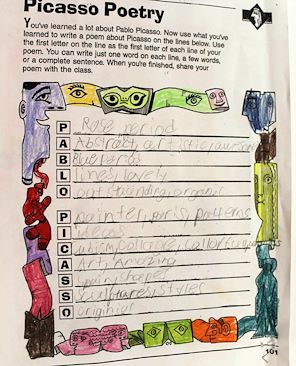 Picasso Poetry
You've learned a lot about Pablo Picasso. Now use what you've
learned to write a poem about Picasso on the lines below. Use
the first letter on the line as the first letter of each line of your
poem. You can write just one word on each line, a few words,
or a complete sentence. When you're finished, share your
poem with the class.
P Rose perind
A Abstract, artistic, awesome
B Blue
L lines, lovely
O outstanding, organic
P painter, paris, patterns
I ideas
C cubism, collage,
A Art, Amazing
S spain, shapes
S Sculptures, styles
O original
101